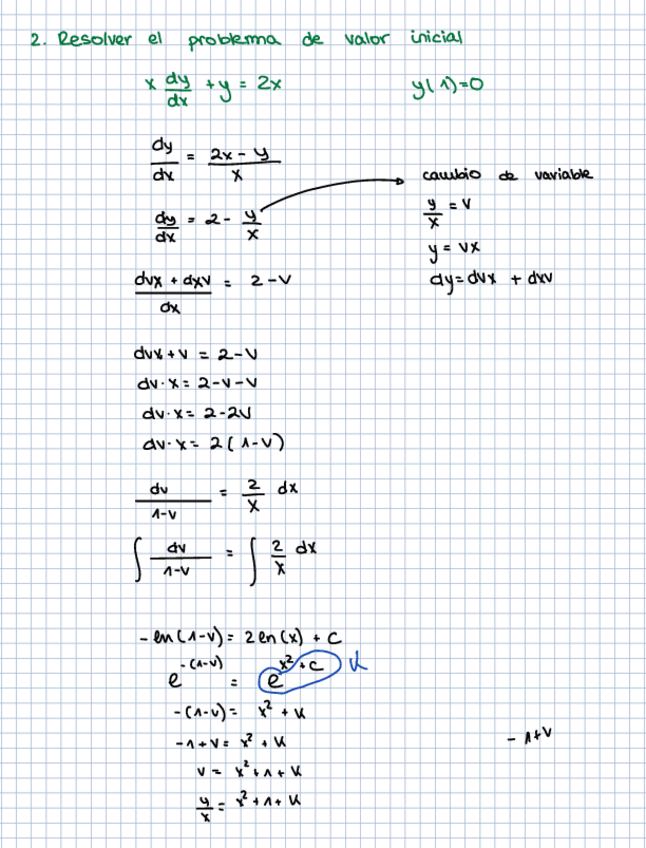 2. Resolver el problema de valor inicial
x dy/dx + y = 2x y(1)=0
dy/dx = 2x - y / x
dy/dx = 2 - y/x
cambio de variable
y/x = v
y = vx
dy = dvx + dxv
dvx + dxv / dx = 2-v
dvx + v = 2-v
dv·x = 2-v-v
dv·x = 2-2v
dv·x = 2(1-v)
dv / 1-v = 2/x dx
∫ dv / 1-v = ∫ 2/x dx
-ln(1-v) = 2ln(x) + c
e^-(1-v) = e^x²+c K
-(1-v) = x² + K
-1+v = x² + K
- 1+v
v = x²+1+K
y/x = x²+1+K